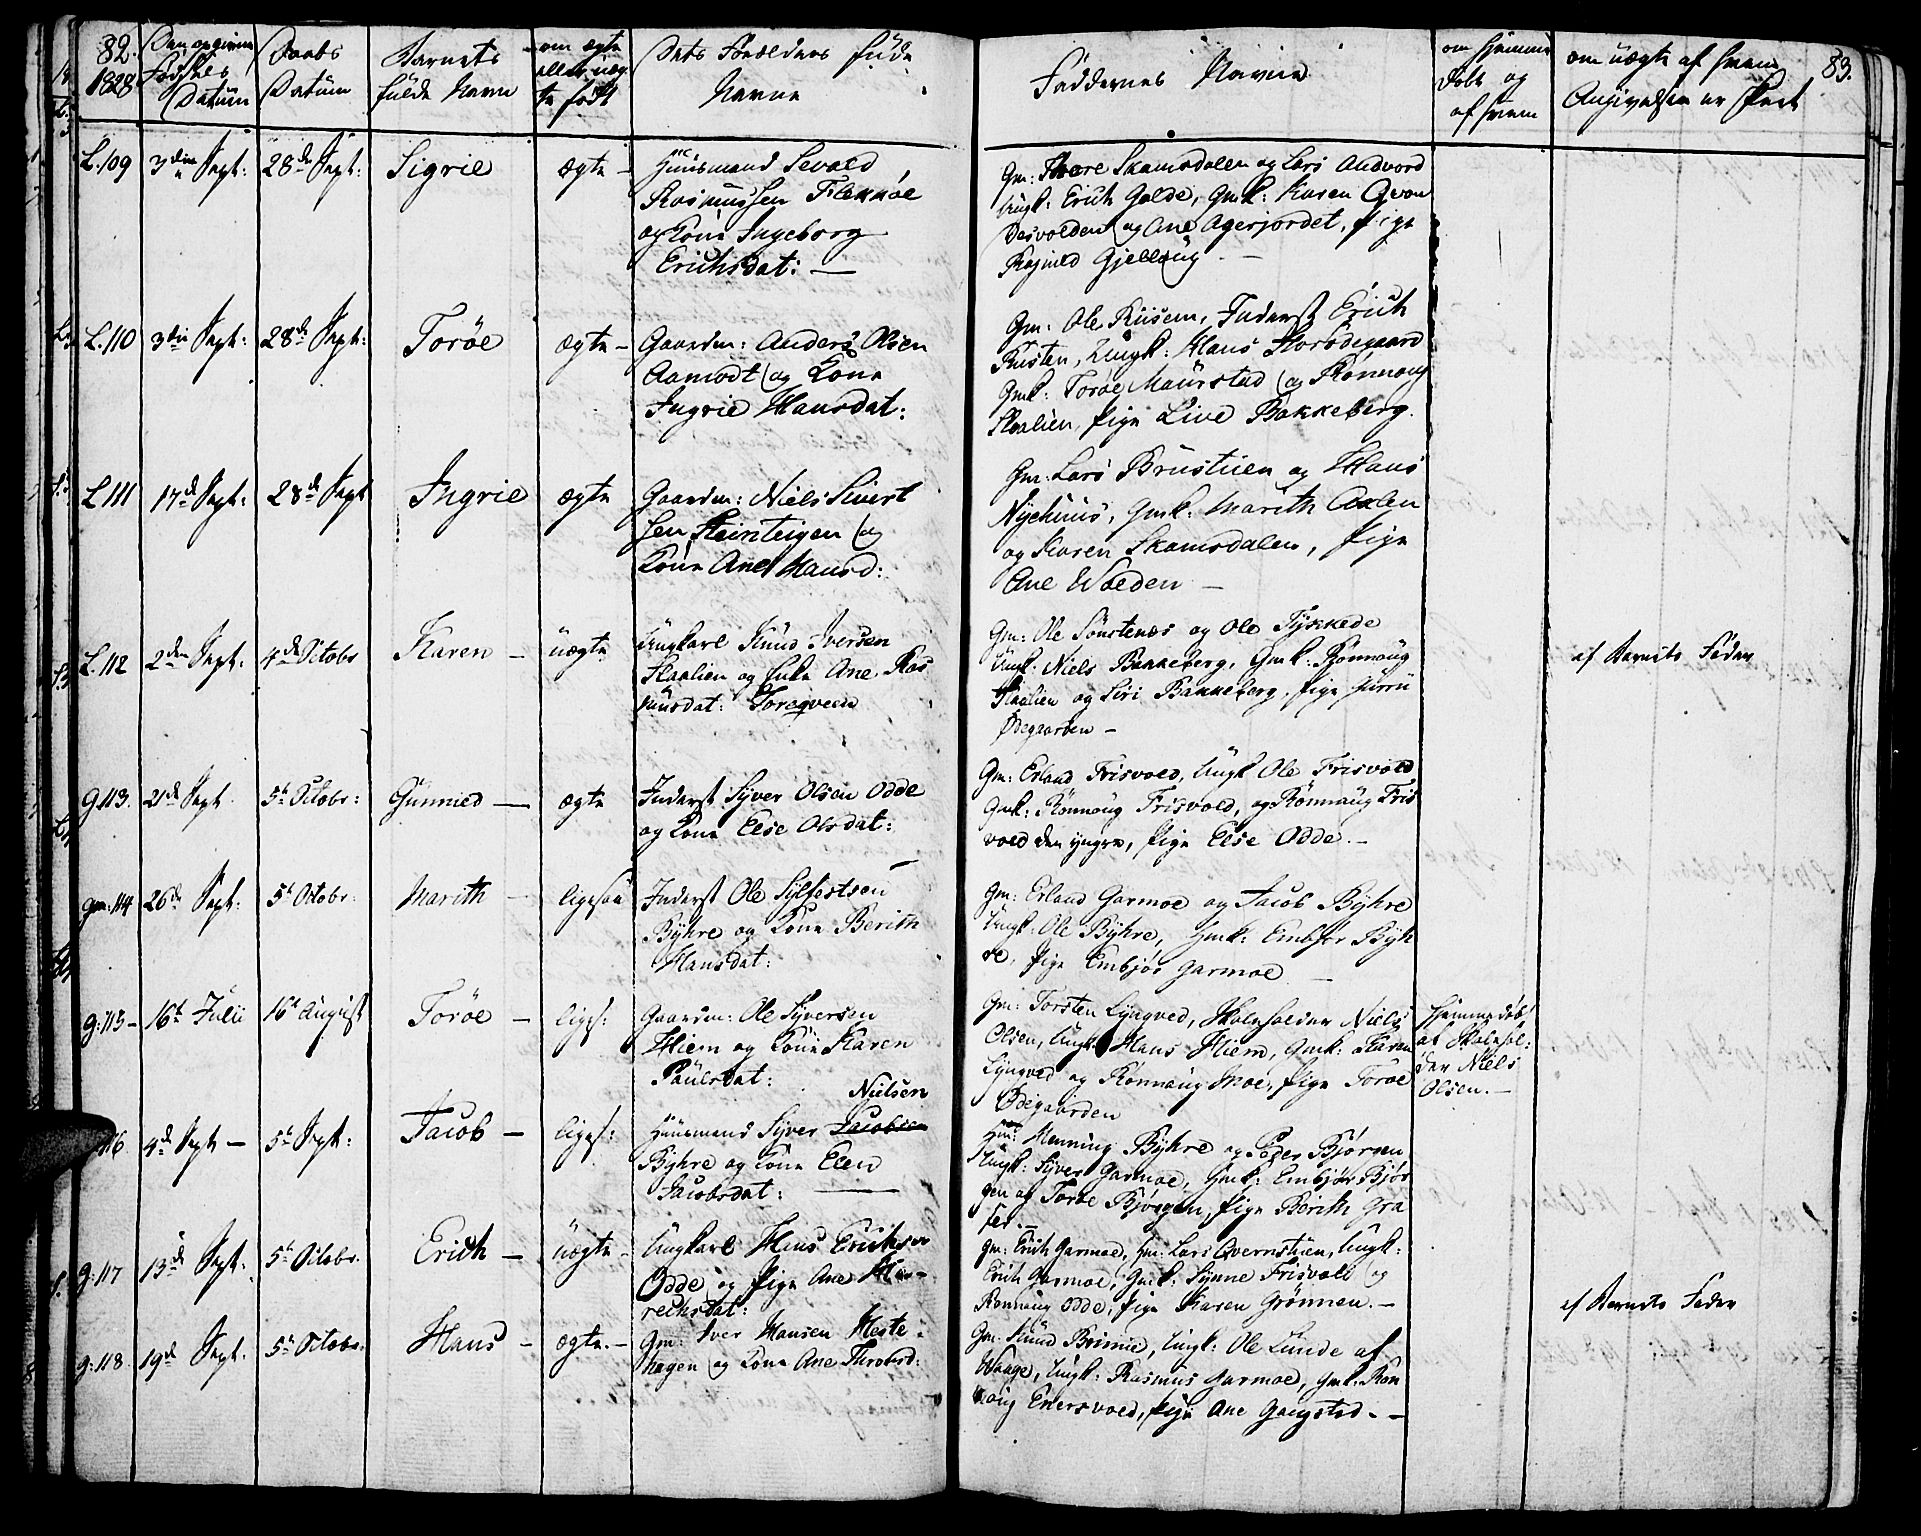 82.
1828
Den opgivne
Fødsels
Datum
Daabs
Datum
Barnets
fulde Navn
om ægte
eller uæg
te født
Dets Forældres fulde
Navne
Faddernes Navne
om hjemme
døbt og
af hvem
om uægte af hvem
Angivelsen er skeet
83.
L.109
3die Sept:
28de Sept:
Sigrie
ægte -
Huusmand Sevald
Rasmussen Flekkøe
og Kone Ingeborg
Erichsdat: —
Gm: Thore Skamsdalen og Lars Andvord
Ungk: Erich Galde, Gmk: Karen Qvan
desvolden og Ane Agerjordet, Pige
Ragnild Gjellaug —
L.110
3die Sept:
28de Sept:
Toröe
ægte -
Gaardm: Anders Olsen
Aamodt og Kone
Ingrie Hansdat:
Gm: Ole Ruisem, Inderst Erich
Rusten, Ungk: Hans Storödegaard
Gmk: Toröe Maurstad og Rönnoug
Skaalien, Pige Live Bakkeberg.
L.111
17de Sept:
28de Sept
Ingrie
ægte
Gaardm: Niels Sivert
sen Steinteigen og
Kone Ane Hansd:
Gm: Lars Brustuen og Hans
Nyehuus, Gmk: Marith Aalen
og Karen Skamsdalen, Pige
Ane Wolden —
L.112
2den Sept:
4de Octobr
Karen -
uægte
Ungkarl Knud Iversen
Skaalien og Enke Ane Ras
musdat: Sorogveen
Gm: Ole Sönstenæs og Ole Fykkede
Ungk: Niels Bakkeberg, Gmk: Rönnoug
Skaalien og Siri Bakkeberg, Pige
Ødegaarden —
af Barnets Fader
G.113.
21de Sept.
5te Octobr:
Gunnied —
ægte
Inderst Syver Olsen Odde
og Kone Else Olsdat:
Gm: Erland Frisvold, Ungk Ole Frisvold
Gmk: Rönnoug Frisvold, og Rönnaug Fris
vold den yngre, Pige Else Odde. —
Gm:114
26de Sept:
5te Octobr:
Marith -
ligesaa
Inderst Ole Sylfestsen
Byhre og Kone Berith
Hansdat:
Gm: Erland Garmoe og Jacob Byhre
Ungk: Ole Byhre, Gmk: Embjör Byh
re, Pige Embjör Garmoe —
G:115 -
16de Julii
16de August
Toröe -
liges:
Gaardm: Ole Syversen
Hiem og Kone Karen
Paulsdat:
Gm: Torsten Lyngved, Skoleholder Niels
Olsen, Ungk Hans Hiem, Gmk: Karen
Lyngved og Rönnaug Moe, Pige Toröe
Ödegaarden
Hjemmedöbt
af Skolehol:
der Niels
Olsen. —
116.
4de Sept —
5te Sept:
Jacob -
liges:
Nielsen
Huusmand Syver Jacobsen
Byhre og Kone Elen
Jacobsdat: —
Hm: Henning Byhre og Peder Bjørgen
Ungk: Syver Garmoe, Gmk: Embjör Björ
gen og Toröe Bjørgen, Pige Berith Gra
fer. —
G:117
13de Sept.
5te Octobr.
Erich -
uægte -
Ungkarl Hans Erichsen
Odde og Pige Ane
rechsdat:
Gm: Erich Garmoe, Hm: Lars Qvernstuen, Ungk:
Erich Garmoe, Gmk: Synne Frisvold og
Ronnoug Odde, Pige Karen Grönnen. —
af Barnets Fader
G:118
19de Sept.
5te Octobr:
Hans -
ægte. -
Gm: Iver Hansen Heste-
hagen og Kone Ane Throndsd:
Gm: Knud Brimie, Ungk: Ole Lunde af
Waage, Ungk: Rasmus Garmoe, Gmk: Ron
noug Enersvold, Pige Ane Gangstad. —